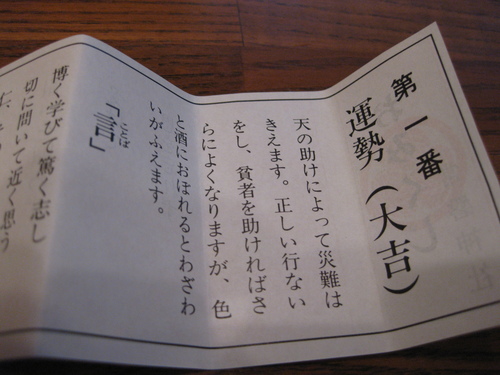 第一番
運勢（大吉）
天の助けによって災難は
きえます。正しい行ない
をし、貧者を助ければさ
らによくなりますが、色
と酒におぼれるとわざわ
いがふえます。
「言」
ことば
博く学びて篤く志し
切に問いて近く思う